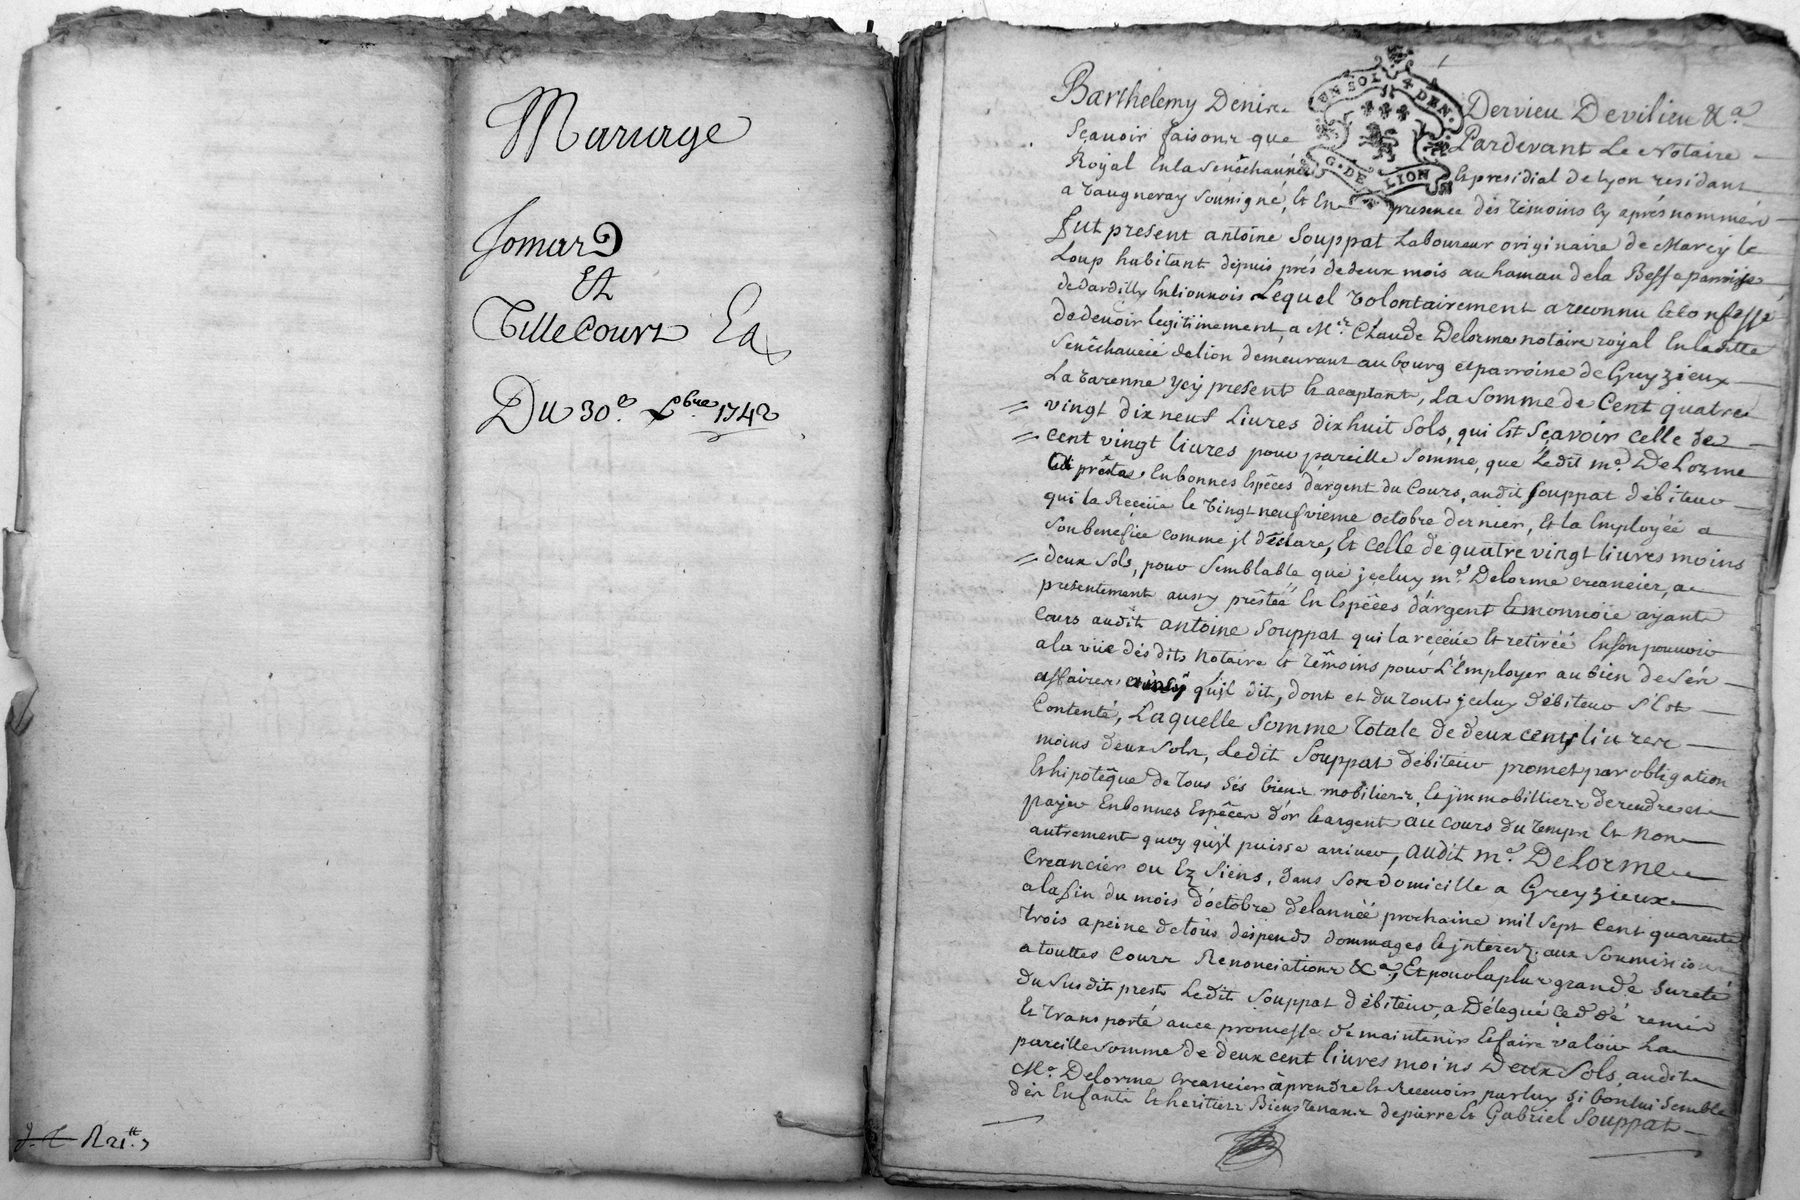 Mariage
Jomard
Et
Villecourt Ea
Du 30e. 1742
R 21tt. 7
UN SOL 4 DEN.
G. DE LION
Barthelemy Denis Dervieu Devilieu &a
Sçauoir faisons que Pardevant Le Notaire
Royal En la Senêchaussée Et presidial de Lyon residant
a Vaugneray Soûsigné, Et En presence dès témoins Cy aprés nommés
fut present antoine Souppat Laboureur originaire de Marcy le
Loup habitant dépuis prés de deux mois au hameau de la Besse parroisse
de dardilly En Lionnois Lequel Volontairement a reconnu Et Confessé
de devoir legitimement a Mre. Claude Delorme notaire royal En la ditte
Senêchaucée de lion demeurant au bourg et parroisse de Greyzieux
La Varenne ycy present Et aceptant, La Somme de Cent quatre
vingt dix neuf Livres dix huit Sols, qui Est Sçavoir celle de
cent vingt livres pour pareille Somme, que Ledit me. DeLorme
prêtas, En bonnes Espêces d'argent du Cours, audit Souppat débiteur
qui la Recüe le Vingt neufvieme octobre dernier, Et la Employée a
Son benefice comme jl déclare, Et celle de quatre vingt livres moins
deux Sols, pour Semblable que jceluy me. Delorme creancier, a
presentement aussy prêtée En Espêces d'argent Et monnoie ayant
Cours audit antoine Souppat qui la receüe Et retirée En Son pouvoir
a la vüe dés dits Notaire Et témoins pour L'Employer au bien de Sés
affaires ainsy qu'jl dit, dont et du tout jceluy débiteur s'Est
Contenté, Laquelle Somme Totale de deux cents livres
moins deux Sols, Ledit Souppat débiteur promet par obligation
Et hipotêque de tous Sés biens mobiliers, Et jmmobilliers de rendre et
payer En bonnes Espêces d'or Et argent au cours du temps Et non
autrement quoy qu'jl puisse arriver, audit me. DeLorme
Creancier ou Ez Siens, dans Son domicille a Greyzieux
a la fin du mois d'octobre de l'année prochaine mil Sept Cent quarente
trois a peine de tous dépends dommages Et jnterez, aux Soumissions
a touttes Cours Renonciations &a, Et pour la plus grande Sureté
du Susdit prest Ledit Souppat débiteur, a Délegué Cedé remis
Et transporté avec promesse de maintenir Et faire valoir La
pareille Somme de deux cent livres moins Deux Sols, audit
Me. Delorme creancier a prendre Et Recevoir par luy Si bon lui Semble
dés Enfants Et heritiers Biens tenants de pierre Et Gabriel Souppat